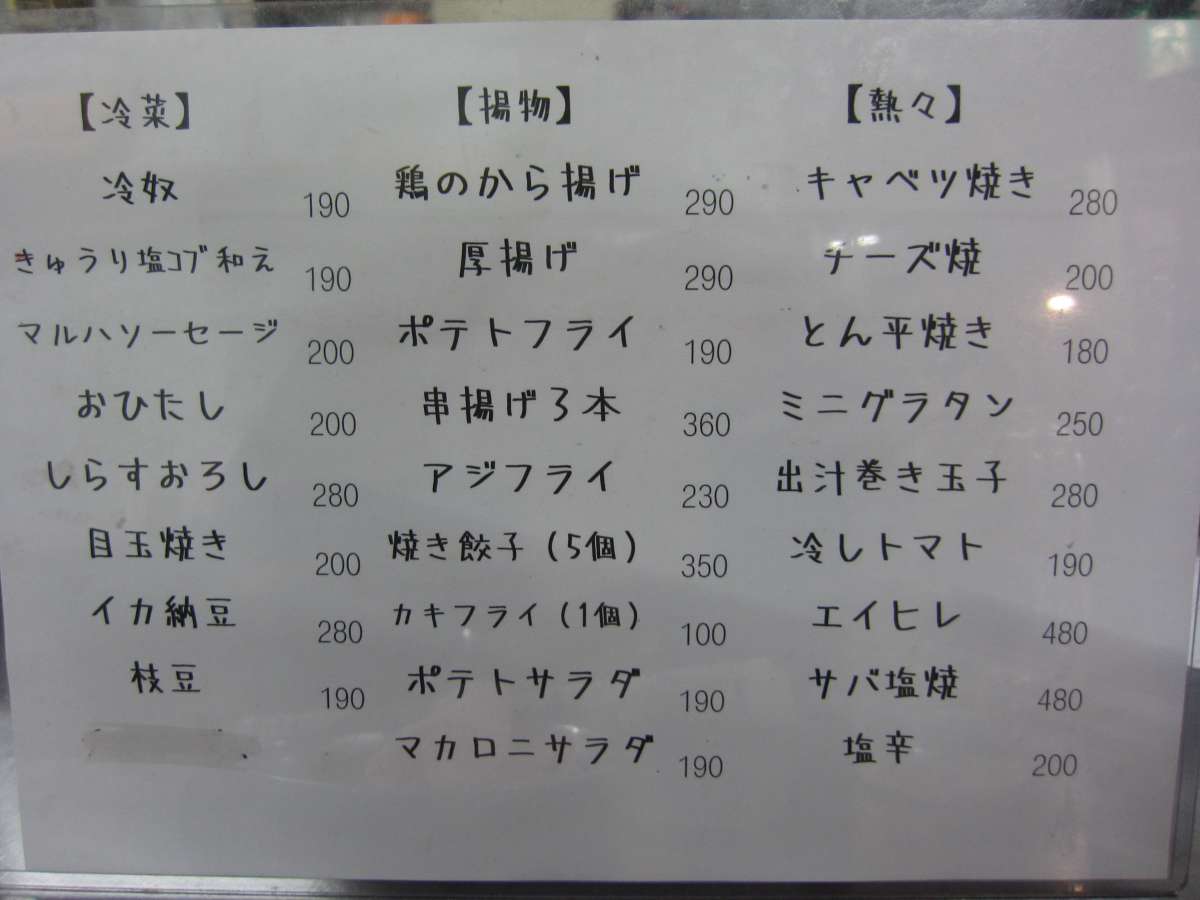 【冷菜】
冷奴 190
きゅうり塩コブ和え 190
マルハソーセージ 200
おひたし 200
しらすおろし 280
目玉焼き 200
イカ納豆 280
枝豆 190
【揚物】
鶏のから揚げ 290
厚揚げ 290
ポテトフライ 190
串揚げ3本 360
アジフライ 230
焼き餃子(5個) 350
カキフライ(1個) 100
ポテトサラダ 190
マカロニサラダ 190
【熱々】
キャベツ焼き 280
チーズ焼 200
とん平焼き 180
ミニグラタン 250
出汁巻き玉子 280
冷しトマト 190
エイヒレ 480
サバ塩焼 480
塩辛 200